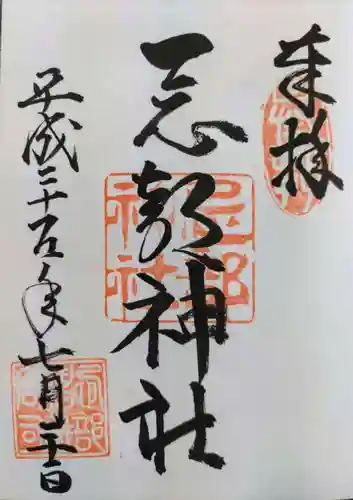 奉拝
忌部神社
忌部
神社
平成二十五年七月二十日